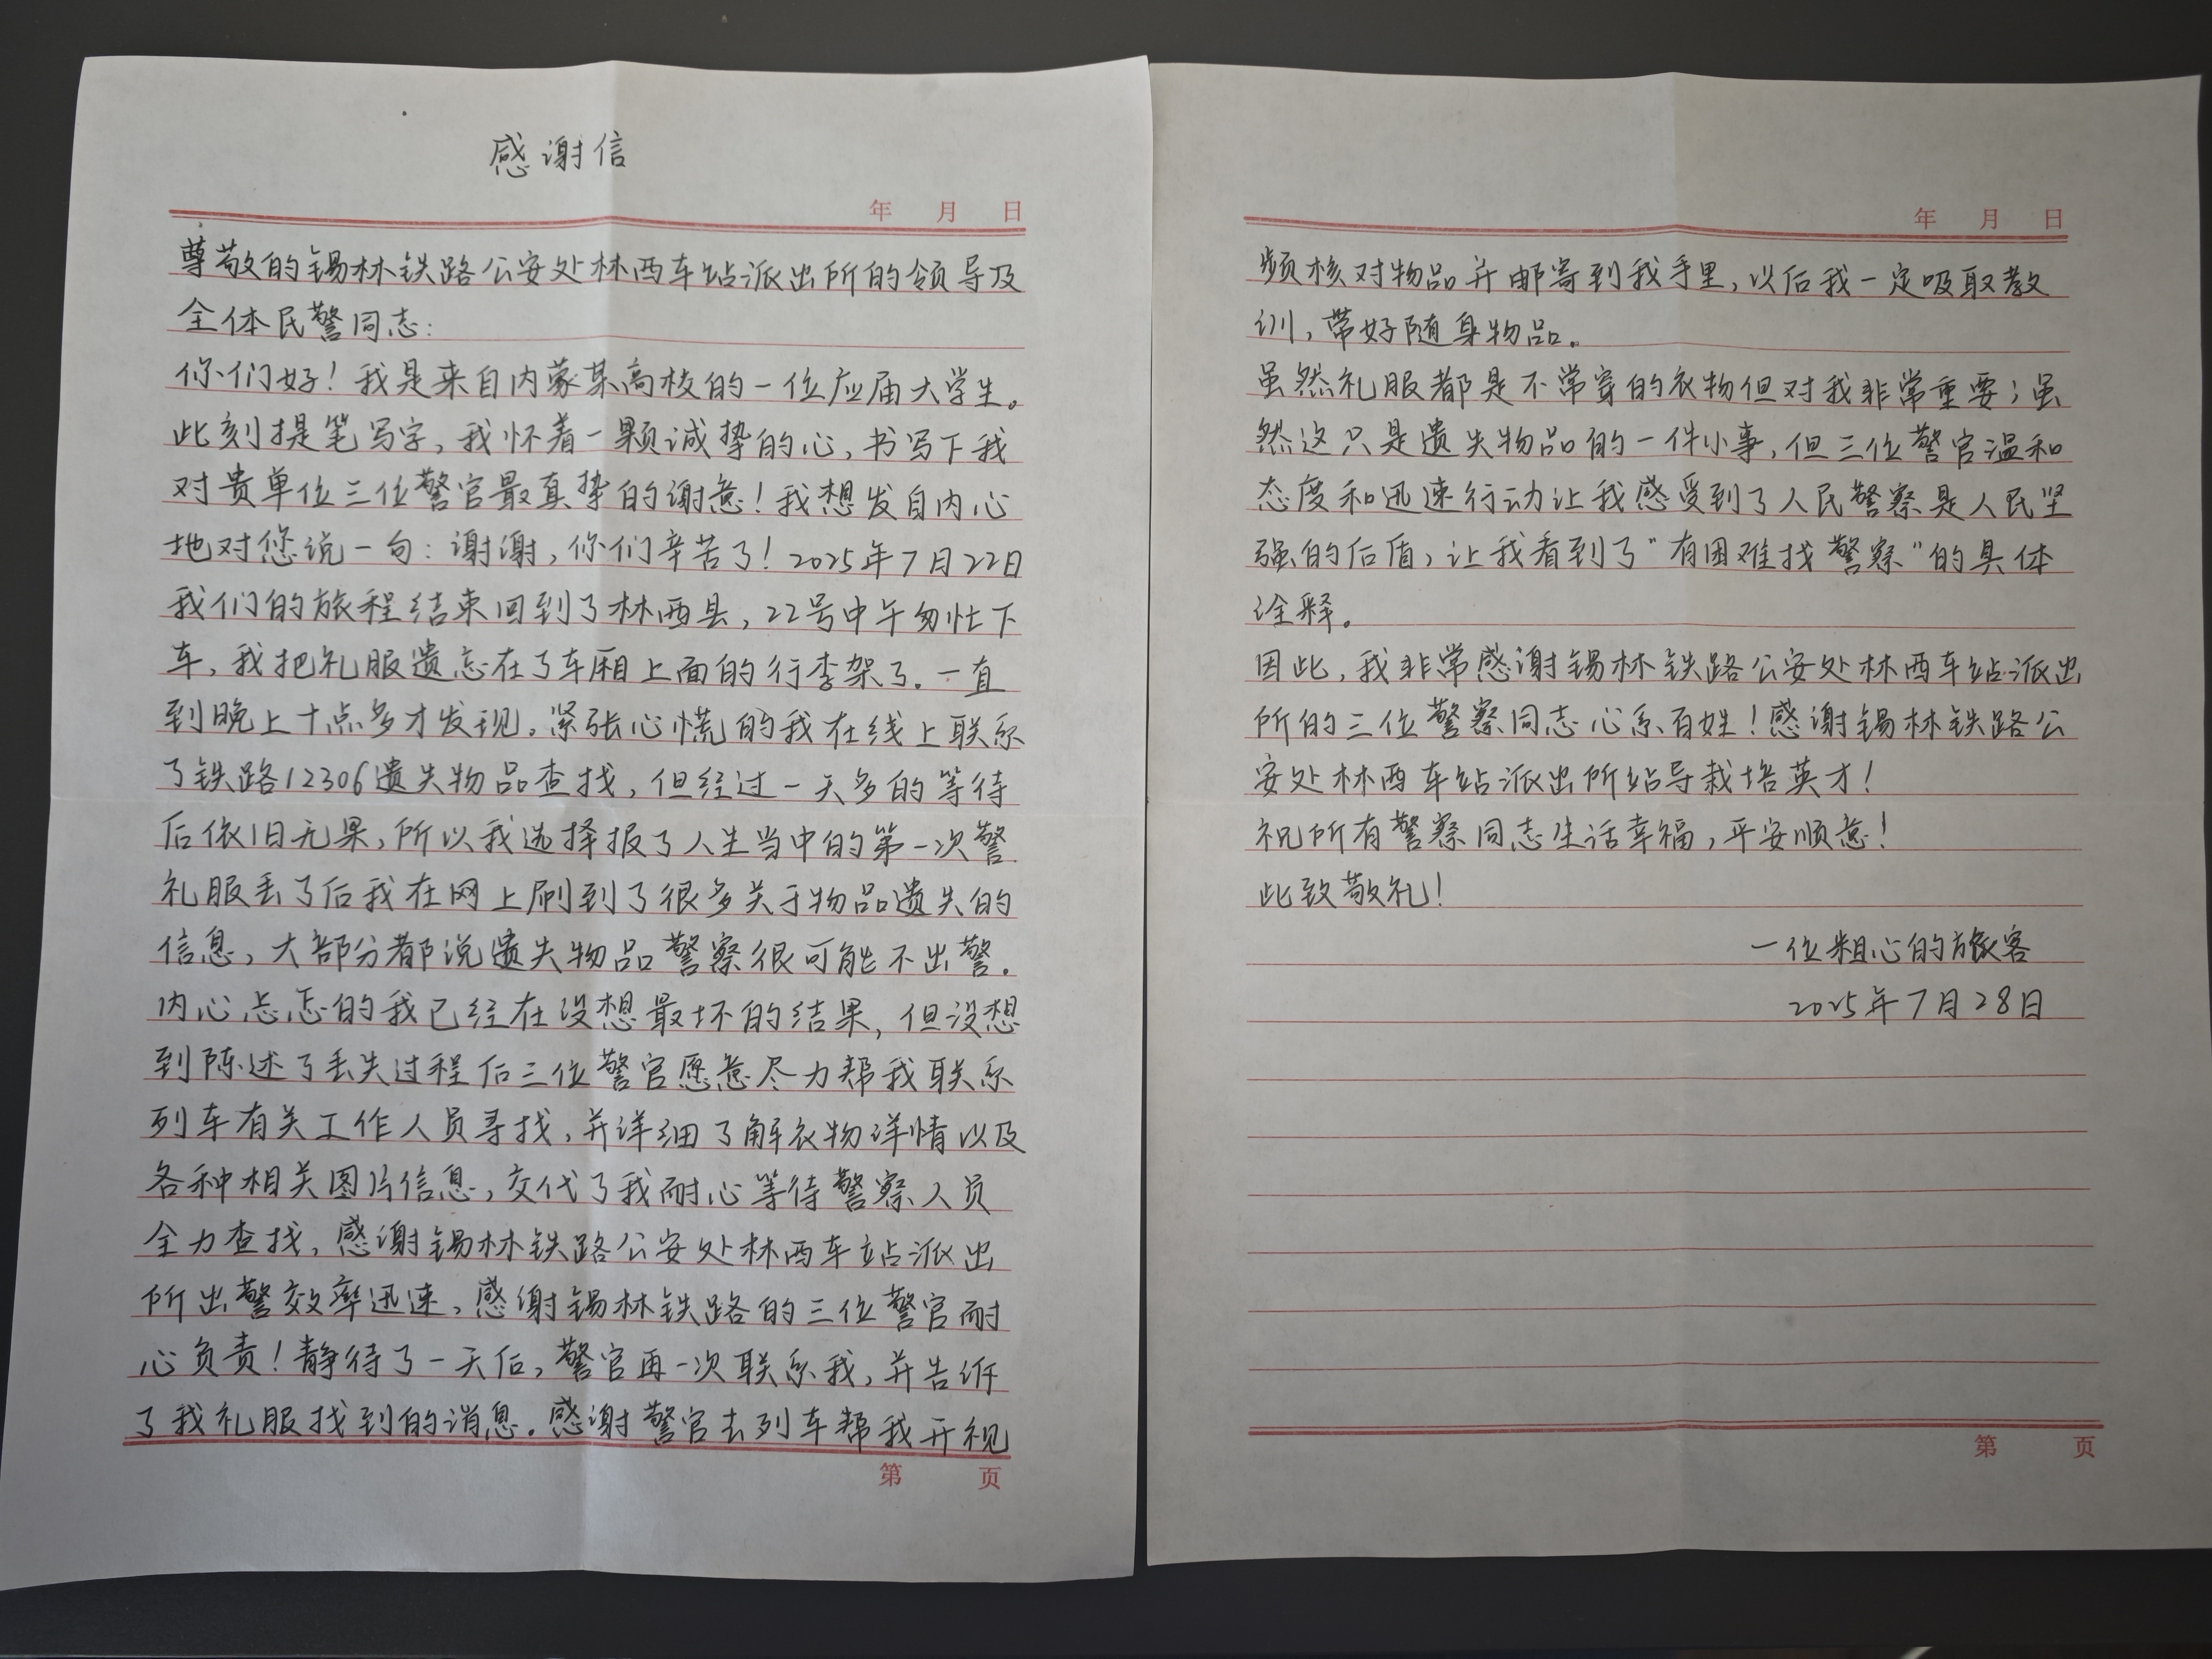 感谢信
年 月 日
尊敬的锡林铁路公安处林西车站派出所的领导及
全体民警同志：
你们好！我是来自内蒙某高校的一位应届大学生。
此刻提笔写字，我怀着一颗诚挚的心，书写下我
对贵单位三位警官最真挚的谢意！我想发自内心
地对您说一句：谢谢，你们辛苦了！2025年7月22日
我们的旅程结束回到了林西县，22号中午匆忙下
车，我把礼服遗忘在了车厢上面的行李架了。一直
到晚上十点多才发现。紧张心慌的我在线上联系
了铁路12306遗失物品查找，但经过一天多的等待
后依旧无果，所以我选择报了人生当中的第一次警
礼服丢了后我在网上刷到了很多关于物品遗失的
信息，大部分都说遗失物品警察很可能不出警。
内心忐忑的我已经在设想最坏的结果，但没想
到陈述了丢失过程后三位警官愿意尽力帮我联系
列车有关工作人员寻找，并详细了解衣物详情以及
各种相关图片信息，交代了我耐心等待警察人员
全力查找，感谢锡林铁路公安处林西车站派出
所出警效率迅速，感谢锡林铁路的三位警官耐
心负责！静待了一天后，警官再一次联系我，并告诉
了我礼服找到的消息。感谢警官去列车帮我开视
第 页
年 月 日
频核对物品并邮寄到我手里，以后我一定吸取教
训，带好随身物品。
虽然礼服都是不常穿的衣物但对我非常重要；虽
然这只是遗失物品的一件小事，但三位警官温和
态度和迅速行动让我感受到了人民警察是人民坚
强的后盾，让我看到了“有困难找警察”的具体
诠释。
因此，我非常感谢锡林铁路公安处林西车站派出
所的三位警察同志心系百姓！感谢锡林铁路公
安处林西车站派出所站导栽培英才！
祝所有警察同志生活幸福，平安顺意！
此致敬礼！
一位粗心的旅客
2025年7月28日
第 页